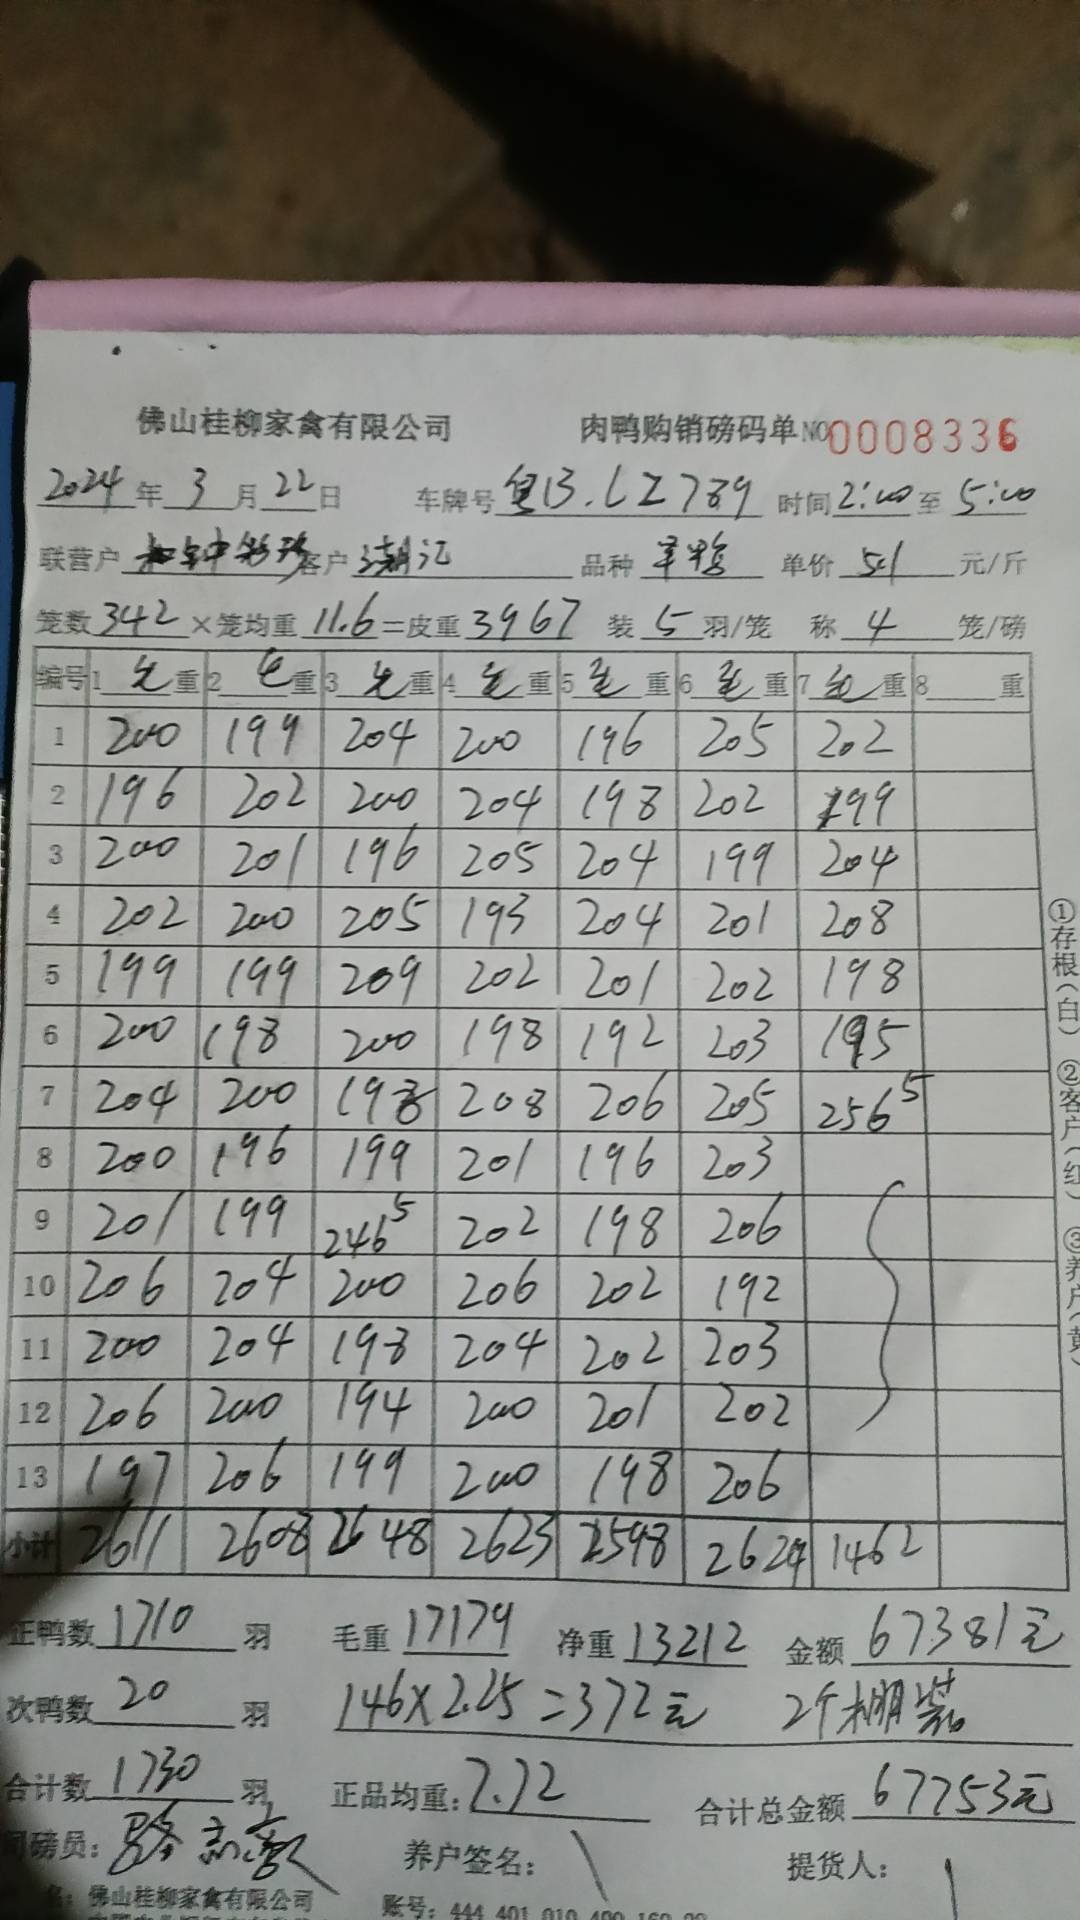 佛山桂柳家禽有限公司 肉鸭购销磅码单 NO 0008336
2024 年 3 月 22 日 车牌号 粤B.LZ789 时间 2:00 至 5:00
联营户 客户 潮记 品种 单价 5.1 元/斤
笼数 342 ×笼均重 11.6 =皮重 3967 装 5 羽/笼 称 4 笼/磅
编号 1 毛 重 2 毛 重 3 毛 重 4 毛 重 5 毛 重 6 毛 重 7 毛 重 8 重
1 200 199 204 200 196 205 202
2 196 202 200 204 198 202 199
3 200 201 196 205 204 199 204
4 202 200 205 193 204 201 208
5 199 199 209 202 201 202 198
6 200 198 200 198 192 203 195
7 204 200 198 208 206 205 256⁵
8 200 196 199 201 196 203
9 201 199 246⁵ 202 198 206
10 206 204 200 206 202 192
11 200 204 198 204 202 203
12 206 200 194 200 201 202
13 197 206 199 200 198 206
小计 2611 2608 2648 2623 2598 2629 1462
正鸭数 1710 羽 毛重 17179 净重 13212 金额 67381元
次鸭数 20 羽 146×2.25=372元 2个棚装
合计数 1730 羽 正品均重: 7.72 合计总金额 67753元
司磅员: 养户签名: 提货人:
名: 佛山桂柳家禽有限公司 账号: 444 401 010 400 160 29
①存根(白) ②客户(红) ③养户(黄)